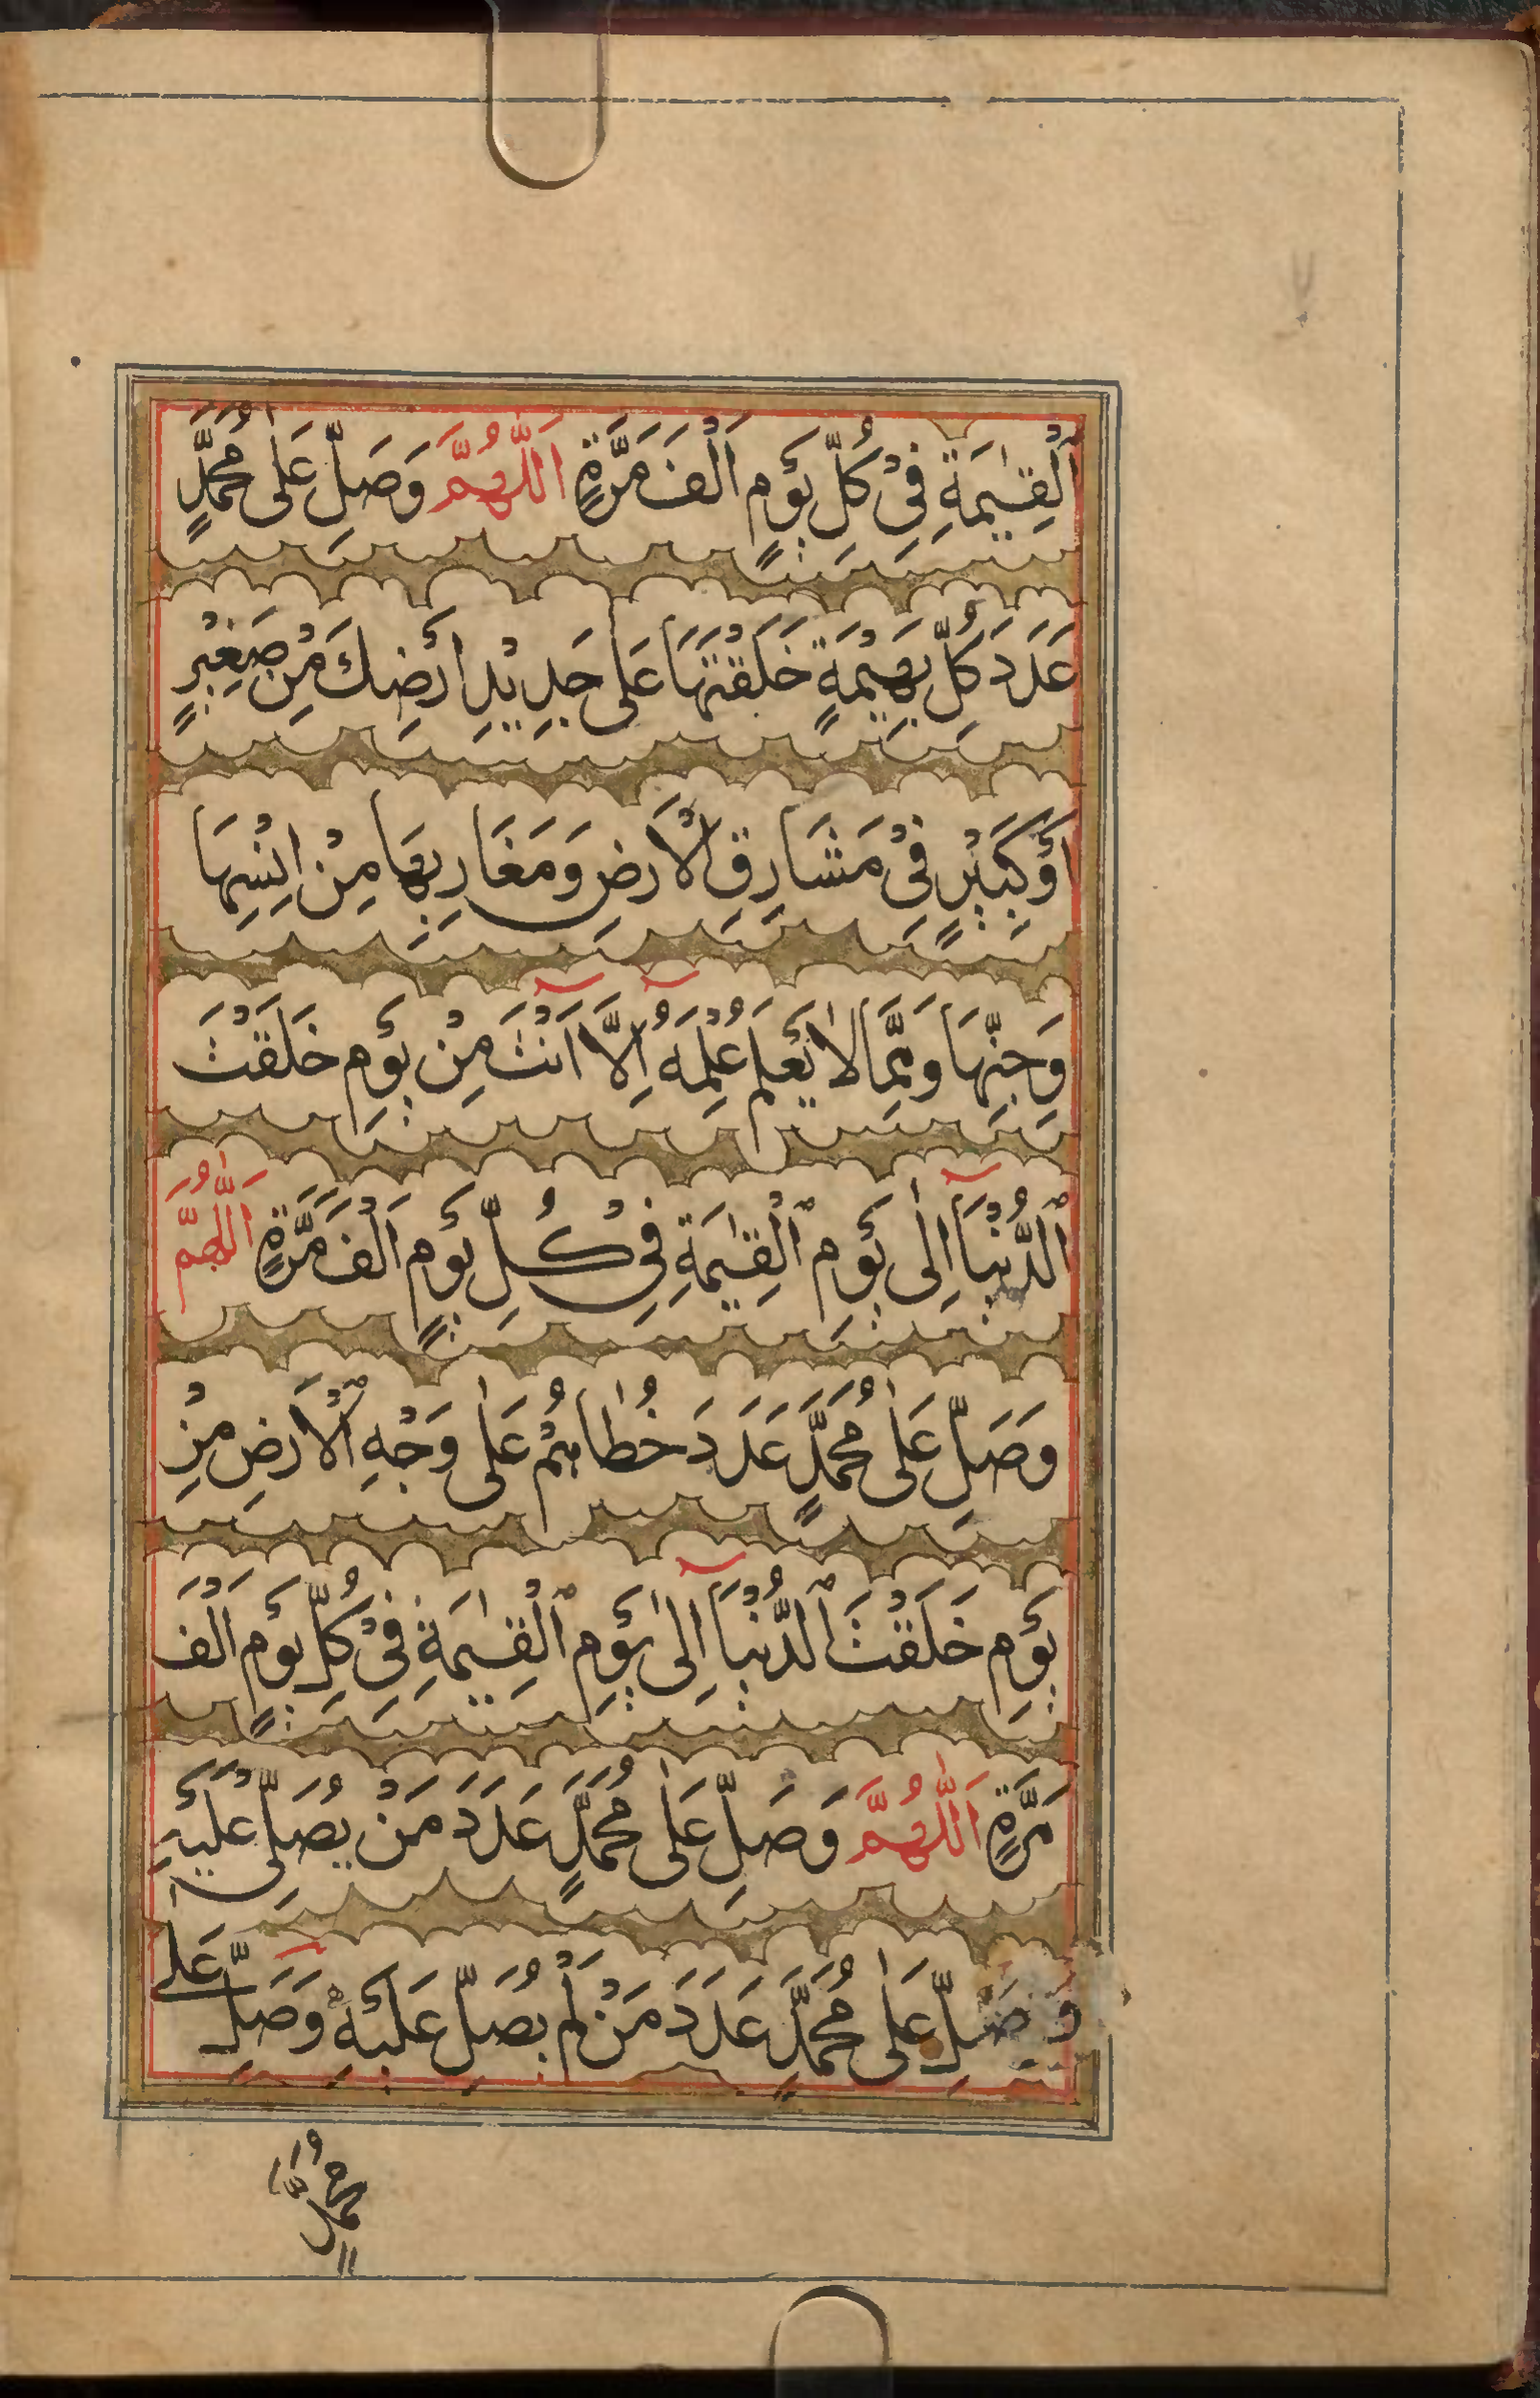 اَلْقِيٰمَةِ فِيْ كُلِّ يَوْمٍ اَلْفَ مَرَّةٍ اَللّٰهُمَّ وَصَلِّ عَلٰى مُحَمَّدٍ
عَدَدَ كُلِّ بَهِيْمَةٍ خَلَقْتَهَا عَلٰى جَدِيْدِ اَرْضِكَ مِنْ صَغِيْرٍ
اَوْ كَبِيْرٍ فِيْ مَشَارِقِ الْاَرْضِ وَمَغَارِبِهَا مِنْ اِنْسِهَا
وَجِنِّهَا وَمِمَّا لَا يَعْلَمُ عِلْمَهُ اِلَّا اَنْتَ مِنْ يَوْمِ خَلَقْتَ
الدُّنْيَا اِلٰى يَوْمِ الْقِيٰمَةِ فِيْ كُلِّ يَوْمٍ اَلْفَ مَرَّةٍ اَللّٰهُمَّ
وَصَلِّ عَلٰى مُحَمَّدٍ عَدَدَ خُطَاهُمْ عَلٰى وَجْهِ الْاَرْضِ مِنْ
يَوْمِ خَلَقْتَ الدُّنْيَا اِلٰى يَوْمِ الْقِيٰمَةِ فِيْ كُلِّ يَوْمٍ اَلْفَ
مَرَّةٍ اَللّٰهُمَّ وَصَلِّ عَلٰى مُحَمَّدٍ عَدَدَ مَنْ يُصَلِّي عَلَيْهِ
وَصَلِّ عَلٰى مُحَمَّدٍ عَدَدَ مَنْ لَمْ يُصَلِّ عَلَيْهِ وَصَلِّ عَلٰى
مُحَمَّدٍ